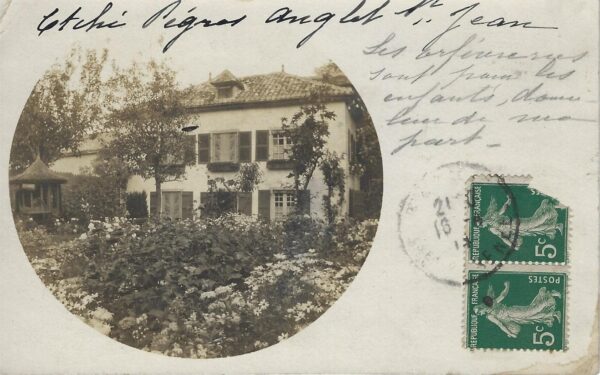 Etchi Pégros Anglet St. Jean
Les orfèvreries
sont pour les
enfants, dou-
leur de ma
part. -
21
15
REPUBLIQUE FRANÇAISE
5c
POSTES
REPUBLIQUE FRANÇAISE
5c